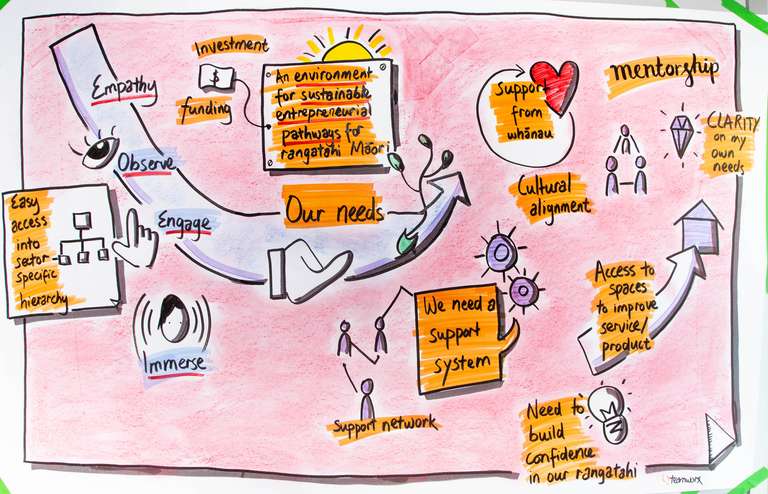 Empathy
Observe
Engage
Immerse
Easy
access
into
sector
specific
hierarchy
Investment
$
funding
An environment
for sustainable
entrepreneurial
pathways for
rangatahi Māori
Our needs
Support
from
whānau
Cultural
alignment
mentorship
CLARITY
on my
own
needs
We need a
support
system
Support network
Access to
spaces
to improve
service/
product
Need to
build
confidence
in our rangatahi